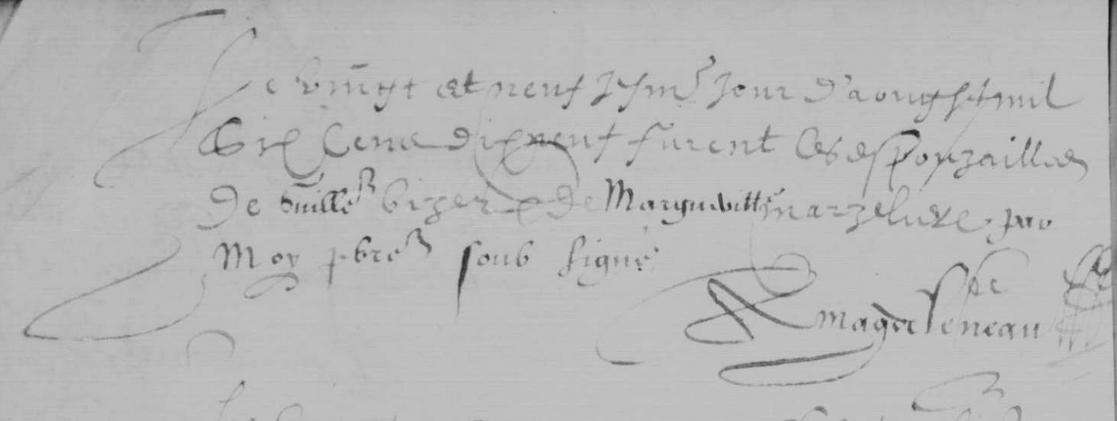 Le vingt et neuf jesme jour d'aougst mil
six cens dix neuf furent les espouzailles
de Guille bizer & de Margueritte marzelure par
Moy pbre soub signé
magdeleneau pbre